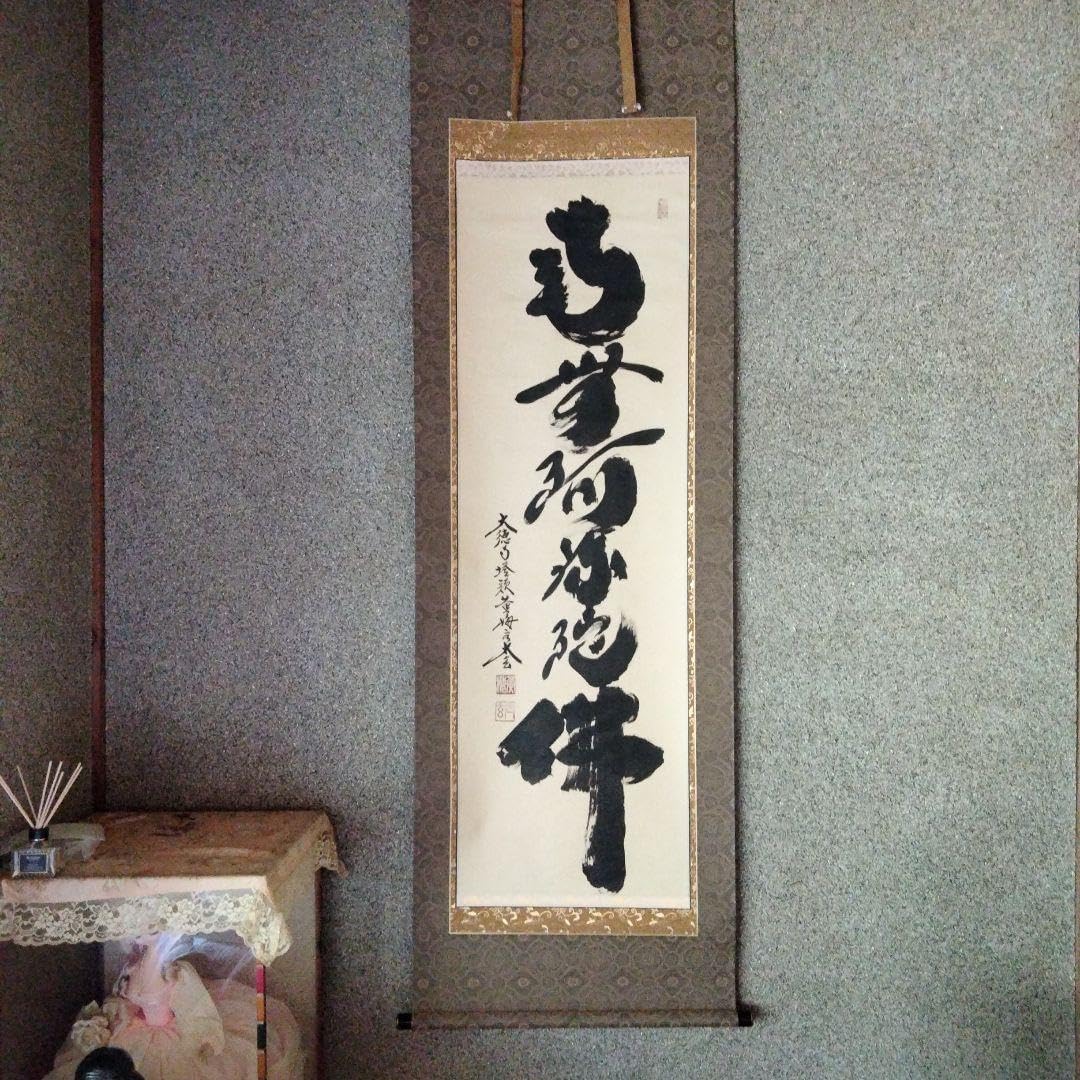 南無阿弥陀佛
大徳寺塔頭黄梅院太玄